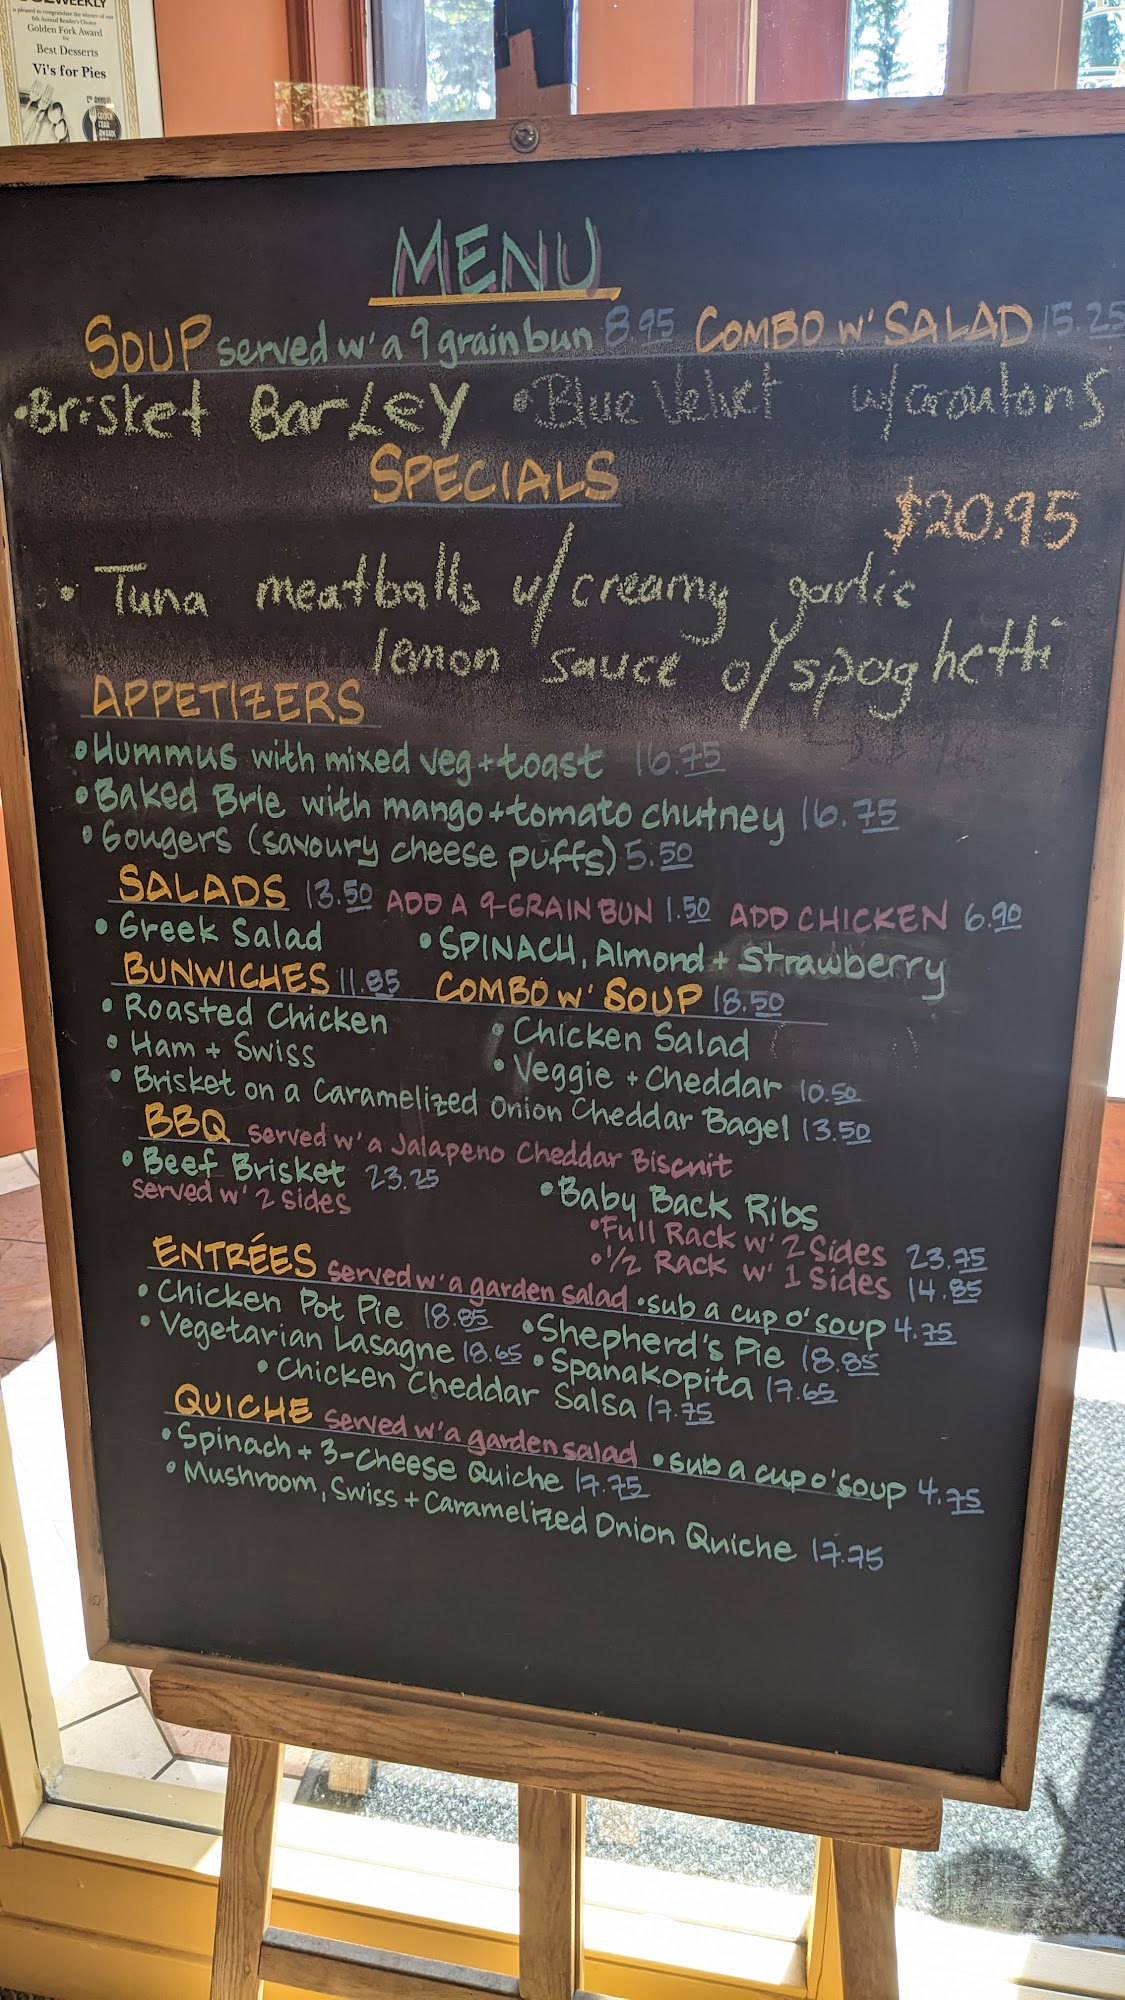 WEEKLY
is pleased to congratulate the winner of our
6th Annual Reader's Choice
Golden Fork Award
for
Best Desserts
Vi's for Pies
MENU
SOUP served w' a 9 grain bun 8.95 COMBO w' SALAD 15.25
•Brisket BarLEY •Blue Velvet w/croutons
SPECIALS
$20.95
• Tuna meatballs w/creamy garlic
lemon sauce o/spaghetti
APPETIZERS
•Hummus with mixed veg + toast 16.75
•Baked Brie with mango + tomato chutney 16.75
•Gougers (savoury cheese puffs) 5.50
SALADS 13.50 ADD A 9-GRAIN BUN 1.50 ADD CHICKEN 6.90
• Greek Salad • SPINACH, Almond + Strawberry
BUNWICHES 11.85 COMBO w' SOUP 18.50
• Roasted Chicken • Chicken Salad
• Ham + Swiss • Veggie + Cheddar 10.50
• Brisket on a Caramelized Onion Cheddar Bagel 13.50
BBQ served w' a Jalapeno Cheddar Biscuit
• Beef Brisket 23.25 • Baby Back Ribs
served w' 2 sides •Full Rack w' 2 Sides 23.75
•1/2 Rack w' 1 Sides 14.85
ENTRÉES served w' a garden salad •sub a cup o' soup 4.75
• Chicken Pot Pie 18.85 •Shepherd's Pie 18.85
• Vegetarian Lasagne 18.65 • Spanakopita 17.65
• Chicken Cheddar Salsa 17.75
QUICHE served w' a garden salad •sub a cup o' soup 4.75
• Spinach + 3-Cheese Quiche 17.75
• Mushroom, Swiss + Caramelized Onion Quiche 17.75